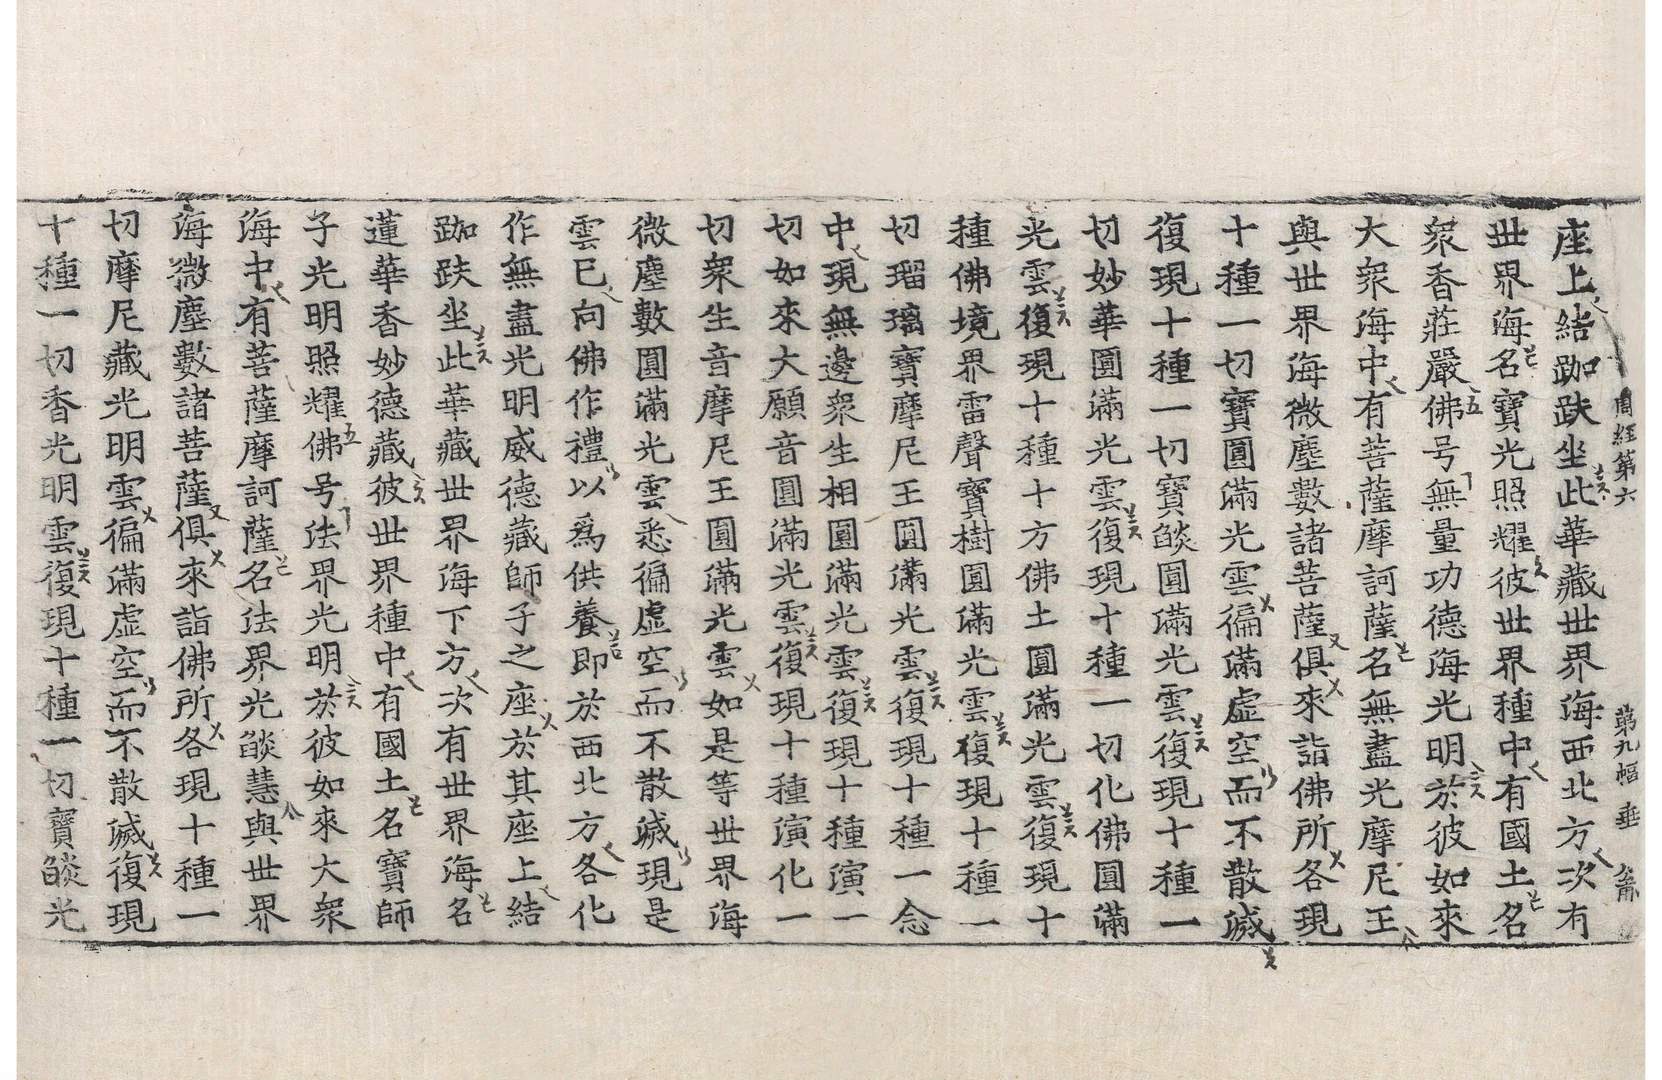 周經第六 第九幅 垂
座上結跏趺坐此華藏世界海西北方次有
世界海名寶光照耀彼世界種中有國土名
衆香莊嚴佛号無量功德海光明於彼如來
大衆海中有菩薩摩訶薩名無盡光摩尼王
與世界海微塵數諸菩薩俱來詣佛所各現
十種一切寶圓滿光雲徧滿虛空而不散滅
復現十種一切寶㷔圓滿光雲復現十種一
切妙華圓滿光雲復現十種一切化佛圓滿
光雲復現十種十方佛土圓滿光雲復現十
種佛境界雷聲寶樹圓滿光雲復現十種一
切瑠璃寶摩尼王圓滿光雲復現十種一念
中現無邊衆生相圓滿光雲復現十種演一
切如來大願音圓滿光雲復現十種演化一
切衆生音摩尼王圓滿光雲如是等世界海
微塵數圓滿光雲悉徧虛空而不散滅現是
雲已向佛作禮以爲供養即於西北方各化
作無盡光明威德藏師子之座於其座上結
跏趺坐此華藏世界海下方次有世界海名
蓮華香妙德藏彼世界種中有國土名寶師
子光明照耀佛号法界光明於彼如來大衆
海中有菩薩摩訶薩名法界光㷔慧與世界
海微塵數諸菩薩俱來詣佛所各現十種一
切摩尼藏光明雲徧滿虛空而不散滅復現
十種一切香光明雲復現十種一切寶㷔光